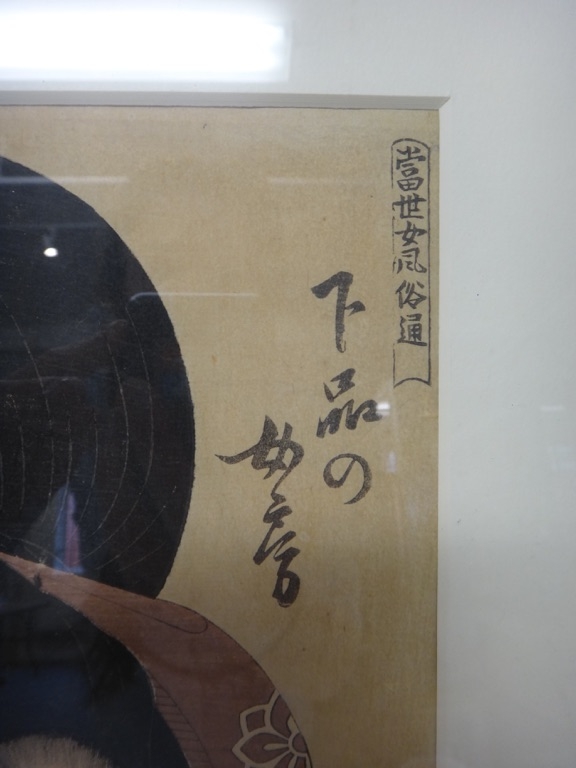 當世女風俗通
下品の
女房